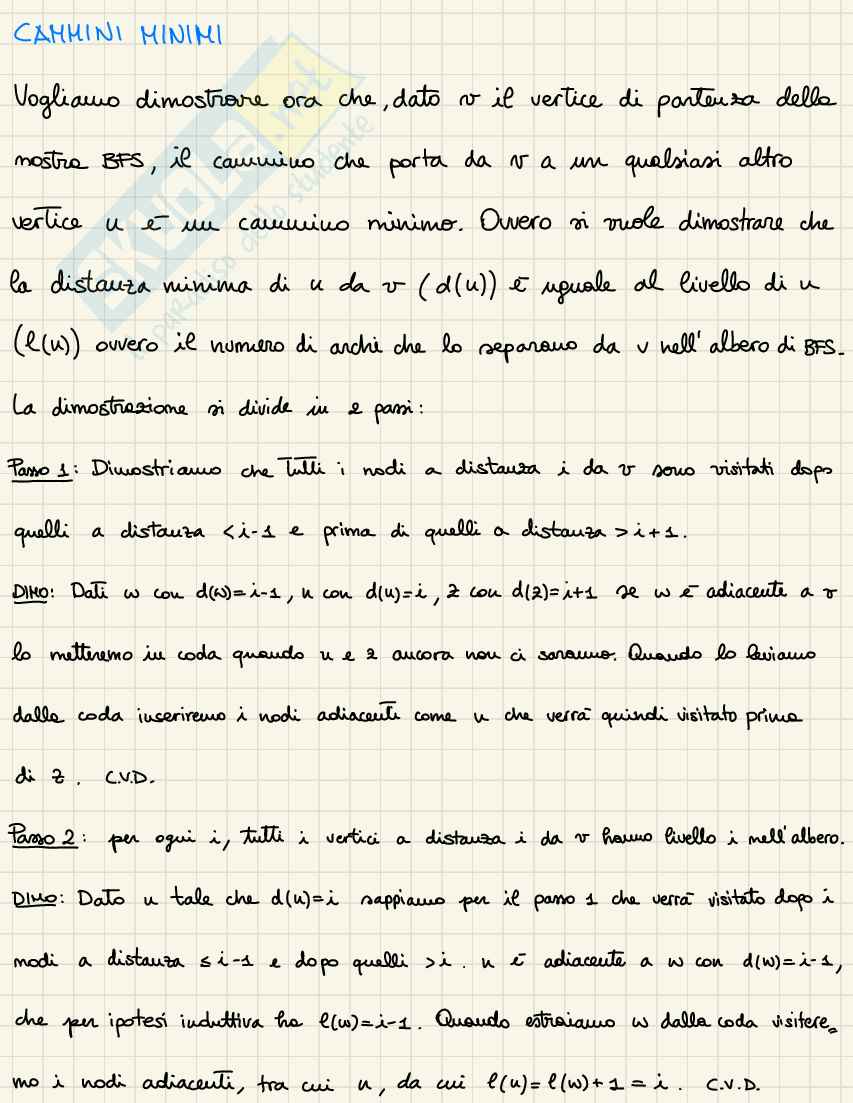 CAMMINI MINIMI
Vogliamo dimostrare ora che, dato v il vertice di partenza della
nostra BFS, il cammino che porta da v a un qualsiasi altro
vertice u è un cammino minimo. Ovvero si vuole dimostrare che
la distanza minima di u da v (d(u)) è uguale al livello di u
(l(u)) ovvero il numero di archi che lo separano da v nell'albero di BFS.
La dimostrazione si divide in 2 passi:
Passo 1: Dimostriamo che tutti i nodi a distanza i da v sono visitati dopo
quelli a distanza <i-1 e prima di quelli a distanza >i+1.
DIMO: Dati w con d(w)=i-1, u con d(u)=i, z con d(z)=i+1 se w è adiacente a v
lo metteremo in coda quando u e z ancora non ci saranno. Quando lo leviamo
dalla coda inseriremo i nodi adiacenti come u che verrà quindi visitato prima
di z. C.V.D.
Passo 2: per ogni i, tutti i vertici a distanza i da v hanno livello i nell'albero.
DIMO: Dato u tale che d(u)=i sappiamo per il passo 1 che verrà visitato dopo i
nodi a distanza ≤i-1 e dopo quelli >i. u è adiacente a w con d(w)=i-1,
che per ipotesi induttiva ha l(w)=i-1. Quando estraiamo w dalla coda visitere=
mo i nodi adiacenti, tra cui u, da cui l(u)=l(w)+1=i. C.V.D.
SKUOLA.net
il paradiso dello studente